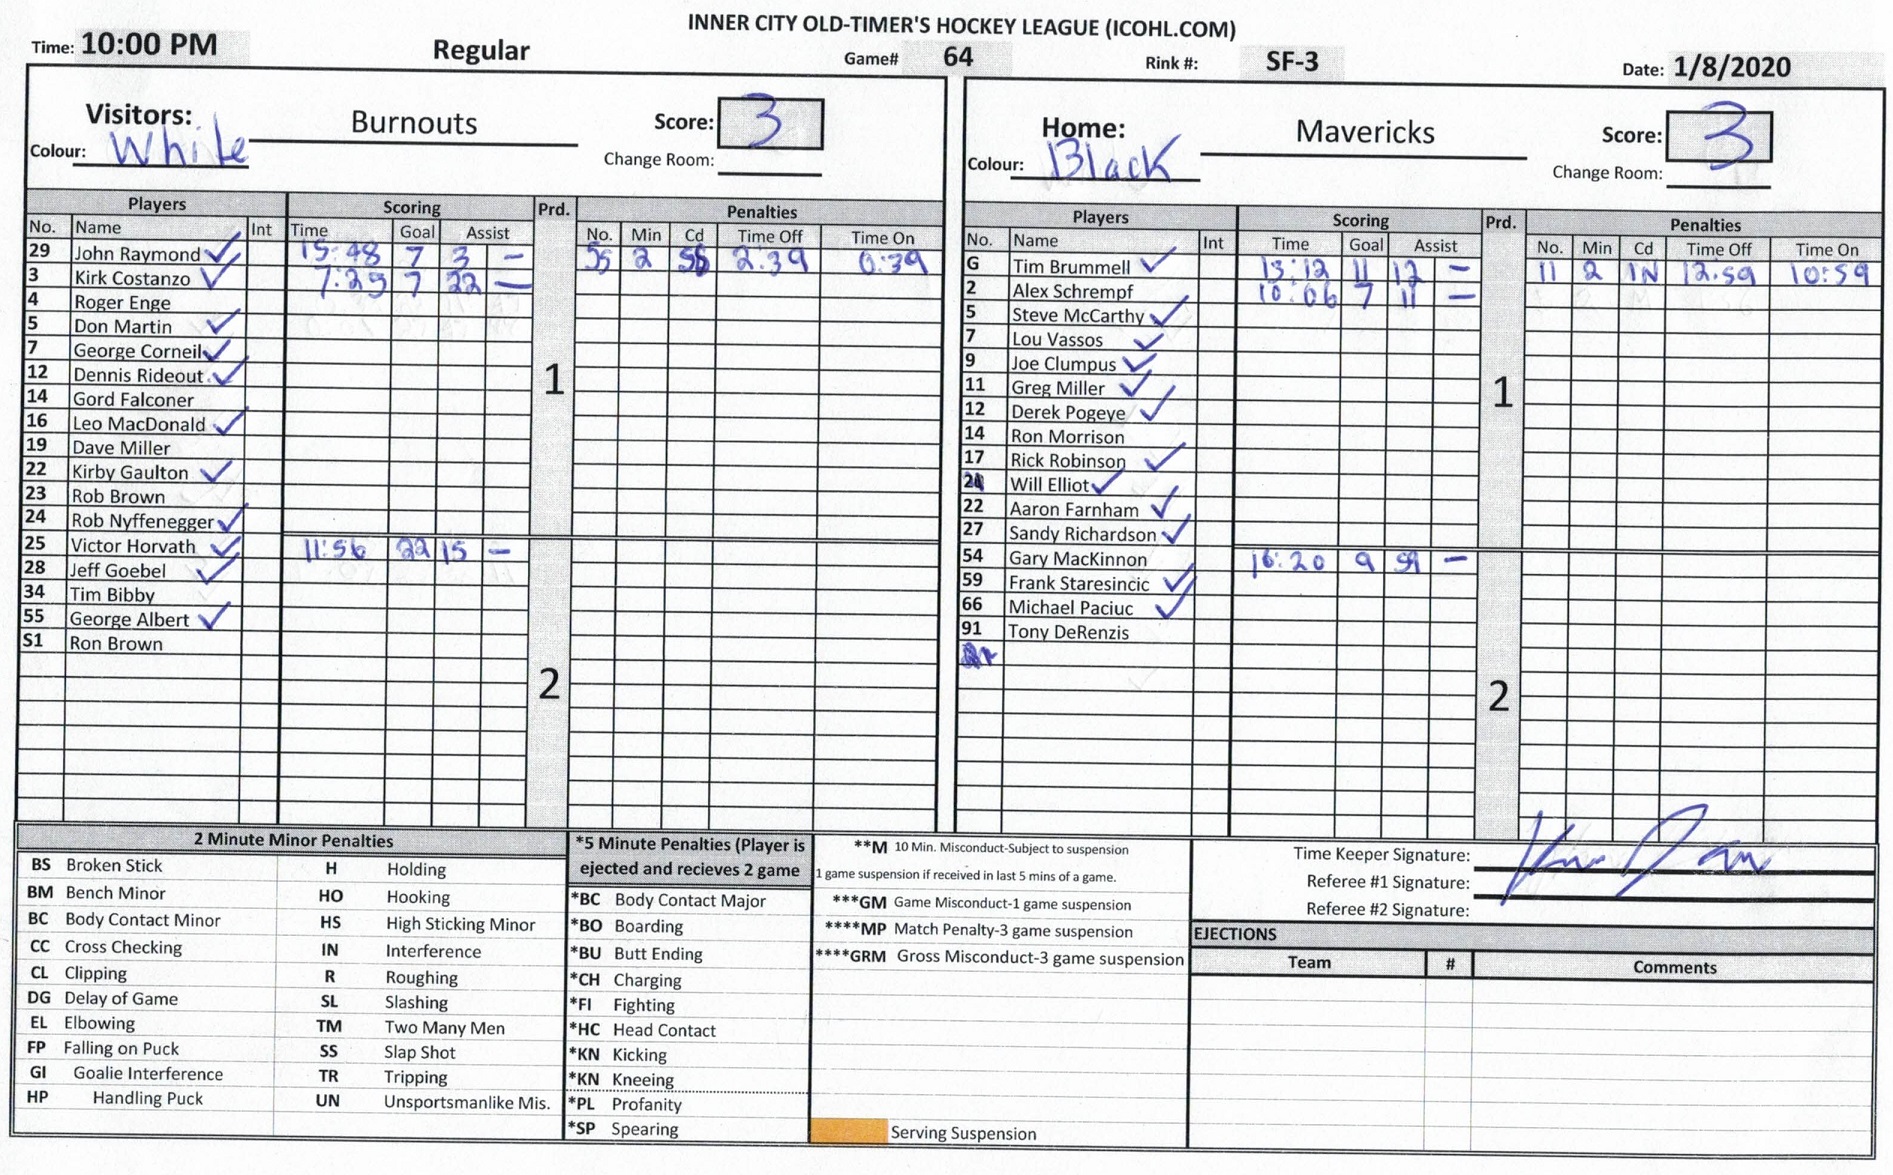 INNER CITY OLD-TIMER'S HOCKEY LEAGUE (ICOHL.COM)
Time: 10:00 PM Regular Game# 64 Rink #: SF-3 Date: 1/8/2020
Visitors: Burnouts Score: 3
Colour: White Change Room:
Players Scoring Prd. Penalties
No. Name Int Time Goal Assist No. Min Cd Time Off Time On
29 John Raymond ✓ 15:48 7 3 - 55 2 SS 2:39 0:39
3 Kirk Costanzo ✓ 7:29 7 22 —
4 Roger Enge
5 Don Martin ✓
7 George Corneil ✓
12 Dennis Rideout ✓
1
14 Gord Falconer
16 Leo MacDonald ✓
19 Dave Miller
22 Kirby Gaulton ✓
23 Rob Brown
24 Rob Nyffenegger ✓
25 Victor Horvath ✓ 11:56 22 15 -
28 Jeff Goebel ✓
34 Tim Bibby
55 George Albert ✓
S1 Ron Brown
2
Home: Mavericks Score: 3
Colour: Black Change Room:
Players Scoring Prd. Penalties
No. Name Int Time Goal Assist No. Min Cd Time Off Time On
G Tim Brummell ✓ 13:12 11 12 - 11 2 IN 12:59 10:59
2 Alex Schrempf 10:06 7 11 -
5 Steve McCarthy ✓
7 Lou Vassos ✓
9 Joe Clumpus ✓
11 Greg Miller ✓
1
12 Derek Pogeye ✓
14 Ron Morrison
17 Rick Robinson ✓
Will Elliot ✓
22 Aaron Farnham ✓
27 Sandy Richardson ✓
54 Gary MacKinnon 16:20 9 59 -
59 Frank Staresincic ✓
66 Michael Paciuc ✓
91 Tony DeRenzis
2
2 Minute Minor Penalties
BS Broken Stick H Holding
BM Bench Minor HO Hooking
BC Body Contact Minor HS High Sticking Minor
CC Cross Checking IN Interference
CL Clipping R Roughing
DG Delay of Game SL Slashing
EL Elbowing TM Two Many Men
FP Falling on Puck SS Slap Shot
GI Goalie Interference TR Tripping
HP Handling Puck UN Unsportsmanlike Mis.
*5 Minute Penalties (Player is
ejected and recieves 2 game
*BC Body Contact Major
*BO Boarding
*BU Butt Ending
*CH Charging
*FI Fighting
*HC Head Contact
*KN Kicking
*KN Kneeing
*PL Profanity
*SP Spearing
**M 10 Min. Misconduct-Subject to suspension
1 game suspension if received in last 5 mins of a game.
***GM Game Misconduct-1 game suspension
****MP Match Penalty-3 game suspension
****GRM Gross Misconduct-3 game suspension
Serving Suspension
Time Keeper Signature:
Referee #1 Signature:
Referee #2 Signature:
EJECTIONS
Team # Comments